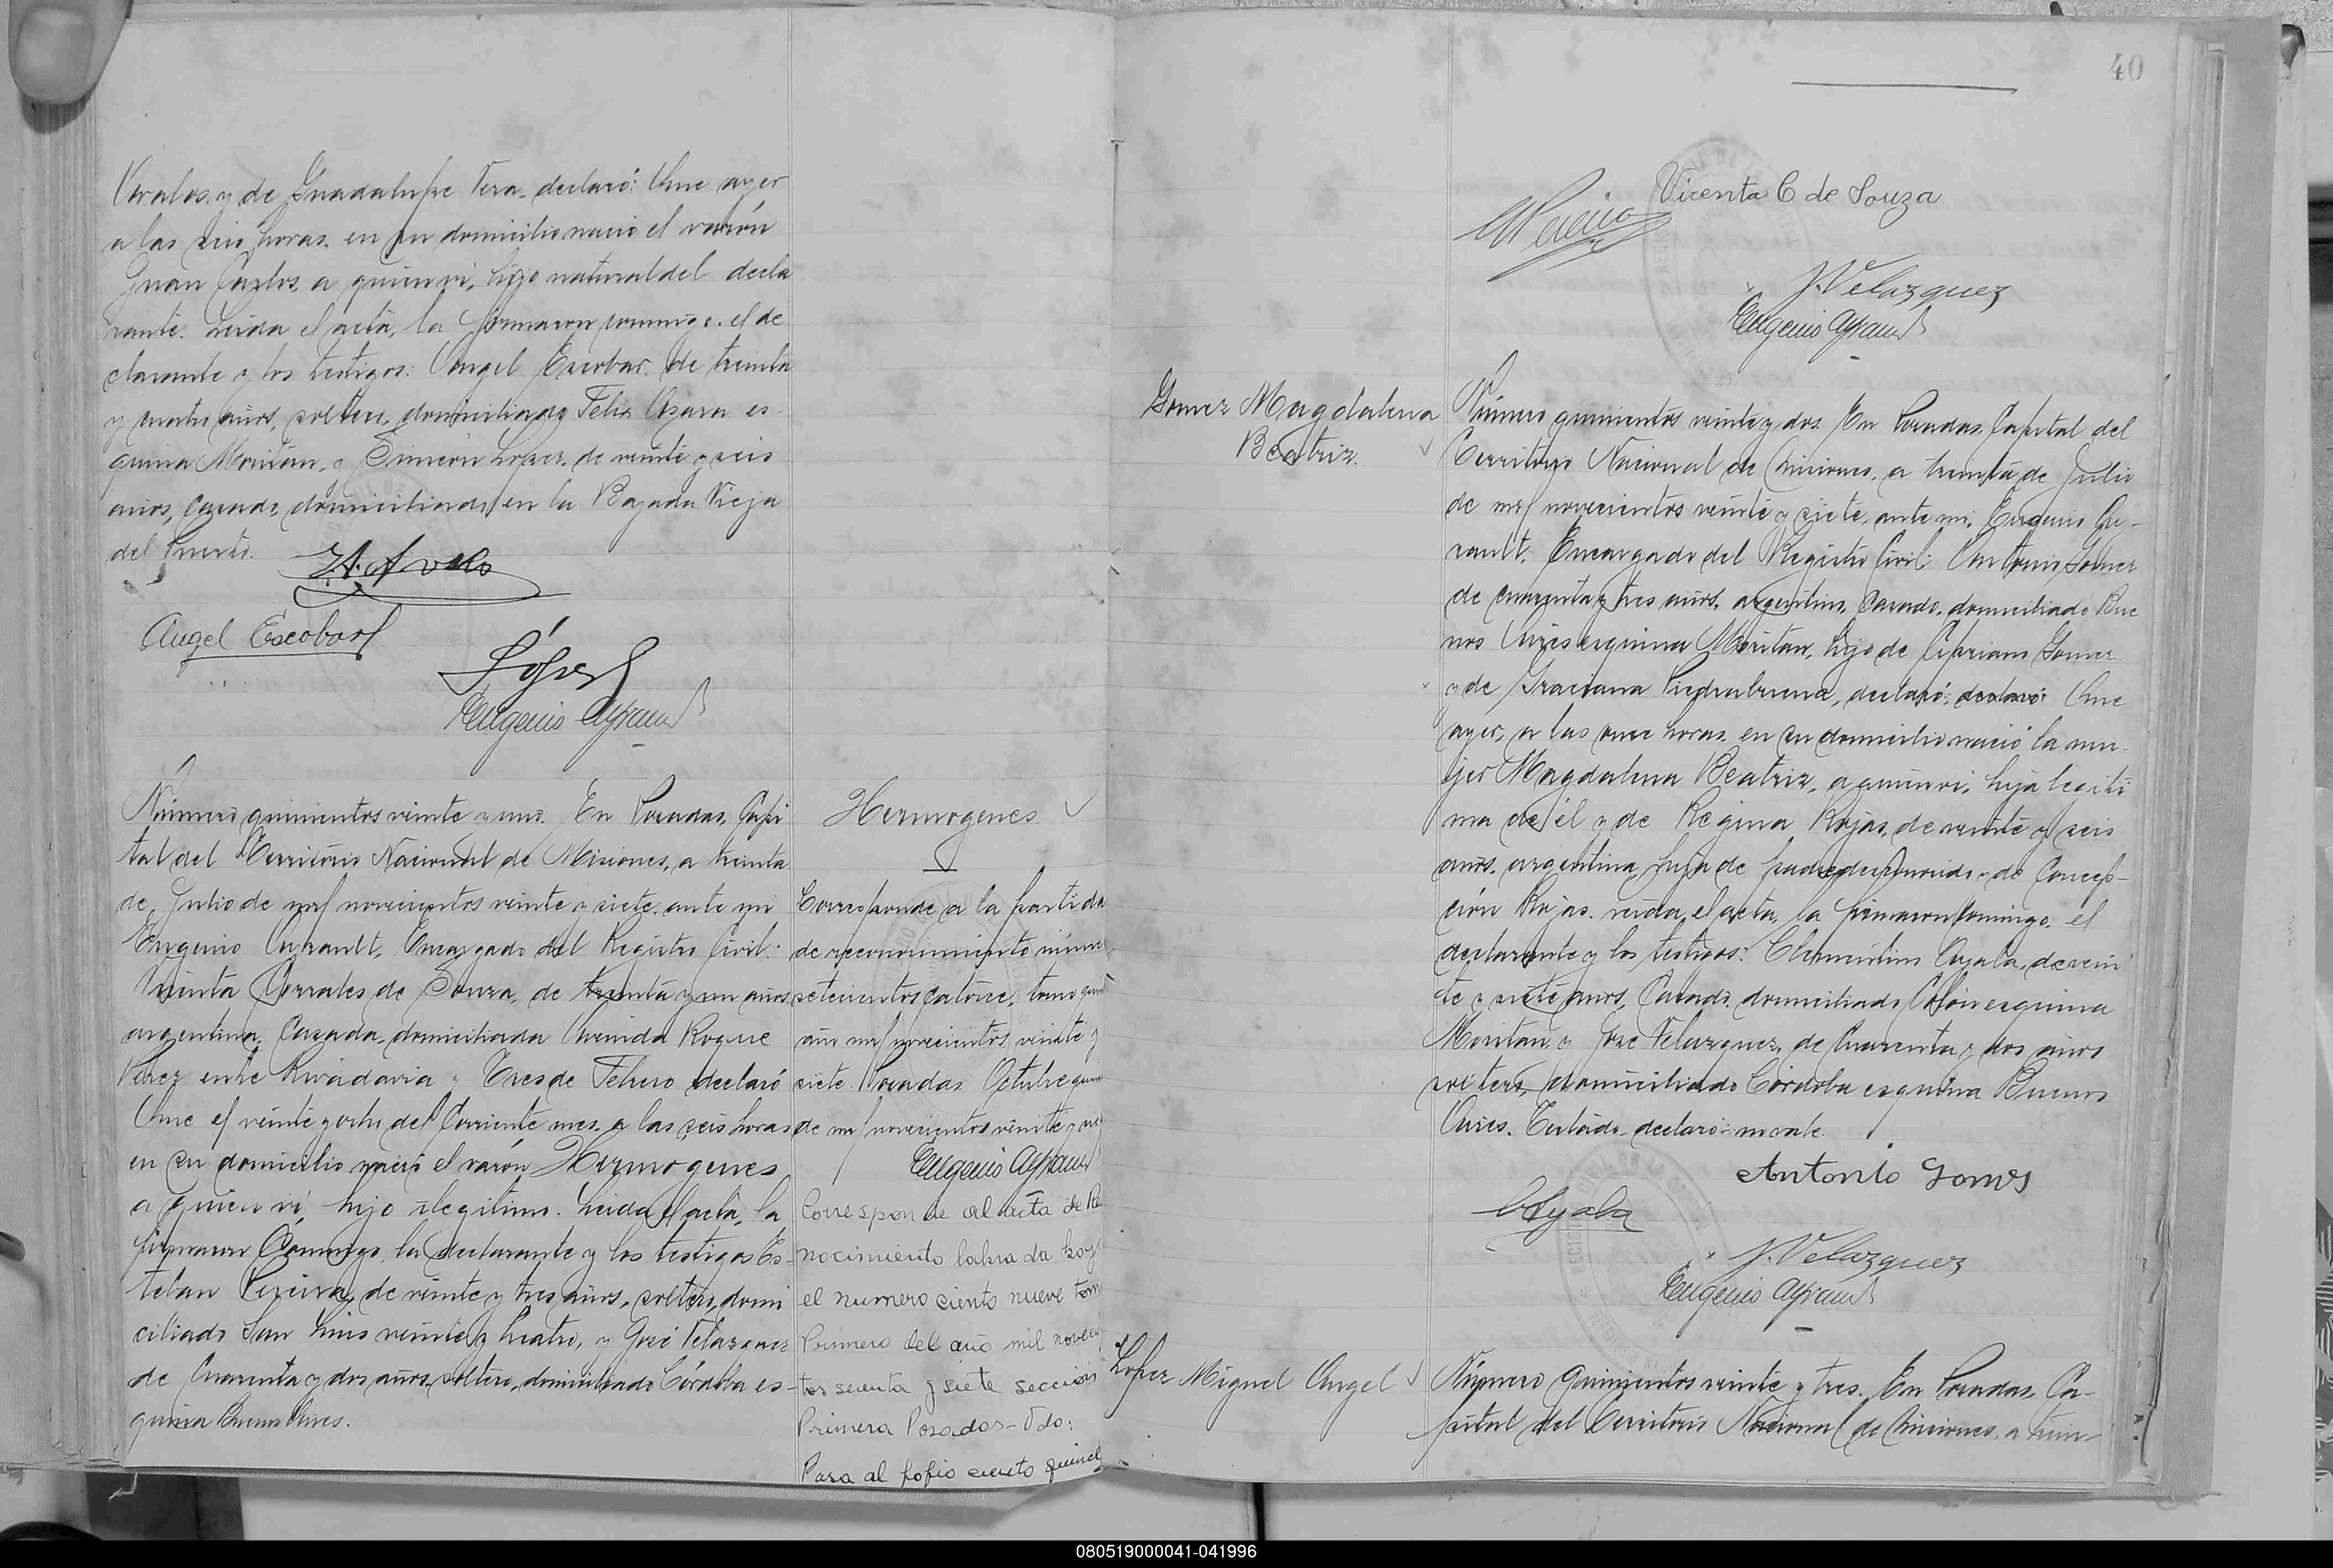 y de Guadalupe Vera, declaró: Que ayer
a las seis horas, en su domicilio nació el varón
Juan Carlos, a quien vi, hijo natural del decla
rante. Leida el acta, la firmaron conmigo, el de
clarante y los testigos: Angel Escobar, de treinta
y cuatro años, soltero, domiciliado Felix Azara es
quina Moritán, y Simeón Lopez, de veinte y seis
años, casado, domiciliado en la Bajada Vieja
del Puerto.
Angel Escobar
López
Eugenio Ayrault
Número quinientos veinte y uno. En Posadas, Capi
tal del Territorio Nacional de Misiones, a treinta
de Julio de mil novecientos veinte y siete, ante mi
Eugenio Ayrault, Encargado del Registro Civil:
Vicenta Corrales de Souza, de treinta y un años,
argentina, casada, domiciliada Avenida Roque
Perez entre Rivadavia y Tres de Febrero declaró
Que el veinte y ocho del corriente mes, a las seis horas
en su domicilio nació el varón Hermogenes
a quien vi, hijo ilegitimo. Leida el acta, la
firmaron Conmigo, la declarante y los testigos Es-
teban Pereira, de veinte y tres años, soltero, domi
ciliado San Luis veinte y cuatro, y José Velazquez
de cuarenta y dos años, soltero, domiciliado Córdoba es-
quina Buenos Aires.
Hermogenes
Corresponde a la partida
de reconocimiento núme
setecientos catorce, tomo
año mil novecientos veinte y
siete. Posadas Octubre
de mil novecientos veinte y
Eugenio Ayrault
Corresponde al acta de Re
nocimiento labrada hoy
el numero ciento nueve tom
Primero del año mil novec
tos sesenta y siete sección
Primera Posadas-
Pasa al folio ciento
40
Vicenta C de Souza
J. Velazquez
Eugenio Ayrault
Gomez Magdalena
Beatriz.
Número quinientos veinte y dos. En Posadas, Capital del
Territorio Nacional de Misiones, a treinta de Julio
de mil novecientos veinte y siete, ante mi, Eugenio Ay-
rault, Encargado del Registro Civil: Antonio Gomez
de cuarenta y tres años, argentino, casado, domiciliado Bue
nos Aires esquina Moritán, hijo de Cipriano Gomez
y de Graciana Piedrabuena, declaró: declaró: Que
ayer, a las once horas, en su domicilio nació la mu-
jer Magdalena Beatriz, a quien vi, hija legiti
ma de él y de Regina Rojas, de veinte y seis
años, argentina, hija de padre desconocido y de Concep-
ción Rojas. Leida el acta, la firmaron conmigo, el
declarante y los testigos: Clementino Ayala, de vein
te y siete años, casado, domiciliado Colón esquina
Moritán y José Velazquez, de cuarenta y dos años
soltero, domiciliado Córdoba esquina Buenos
Aires. Testado declaró: no vale.
Antonio Gomes
Ayala
J. Velazquez
Eugenio Ayrault
Lopez Miguel Angel
Número quinientos veinte y tres. En Posadas, Ca-
pital del Territorio Nacional de Misiones, a trein-
080519000041-041996